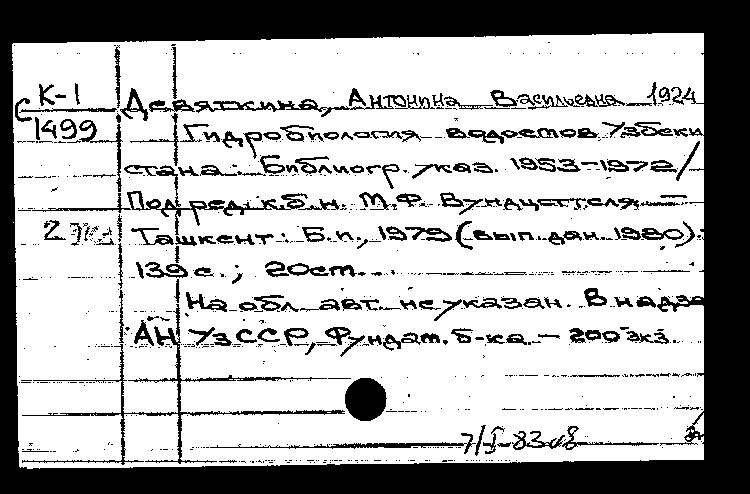 С К-1
1499
Девяткина, Антонина Васильевна 1924
Гидробиология водоемов Узбеки
стана: Библиогр. указ. 1953-1972/
Под ред. к.б.н. М.Ф. Вундцеттеля. —
2 экз
Ташкент: Б.и., 1979 (вып. дан. 1980).
139 с.; 20 cm.
На обл. авт. не указан. В надза
АН УзССР, Фундам. б-ка. — 200 экз.
7/I-83